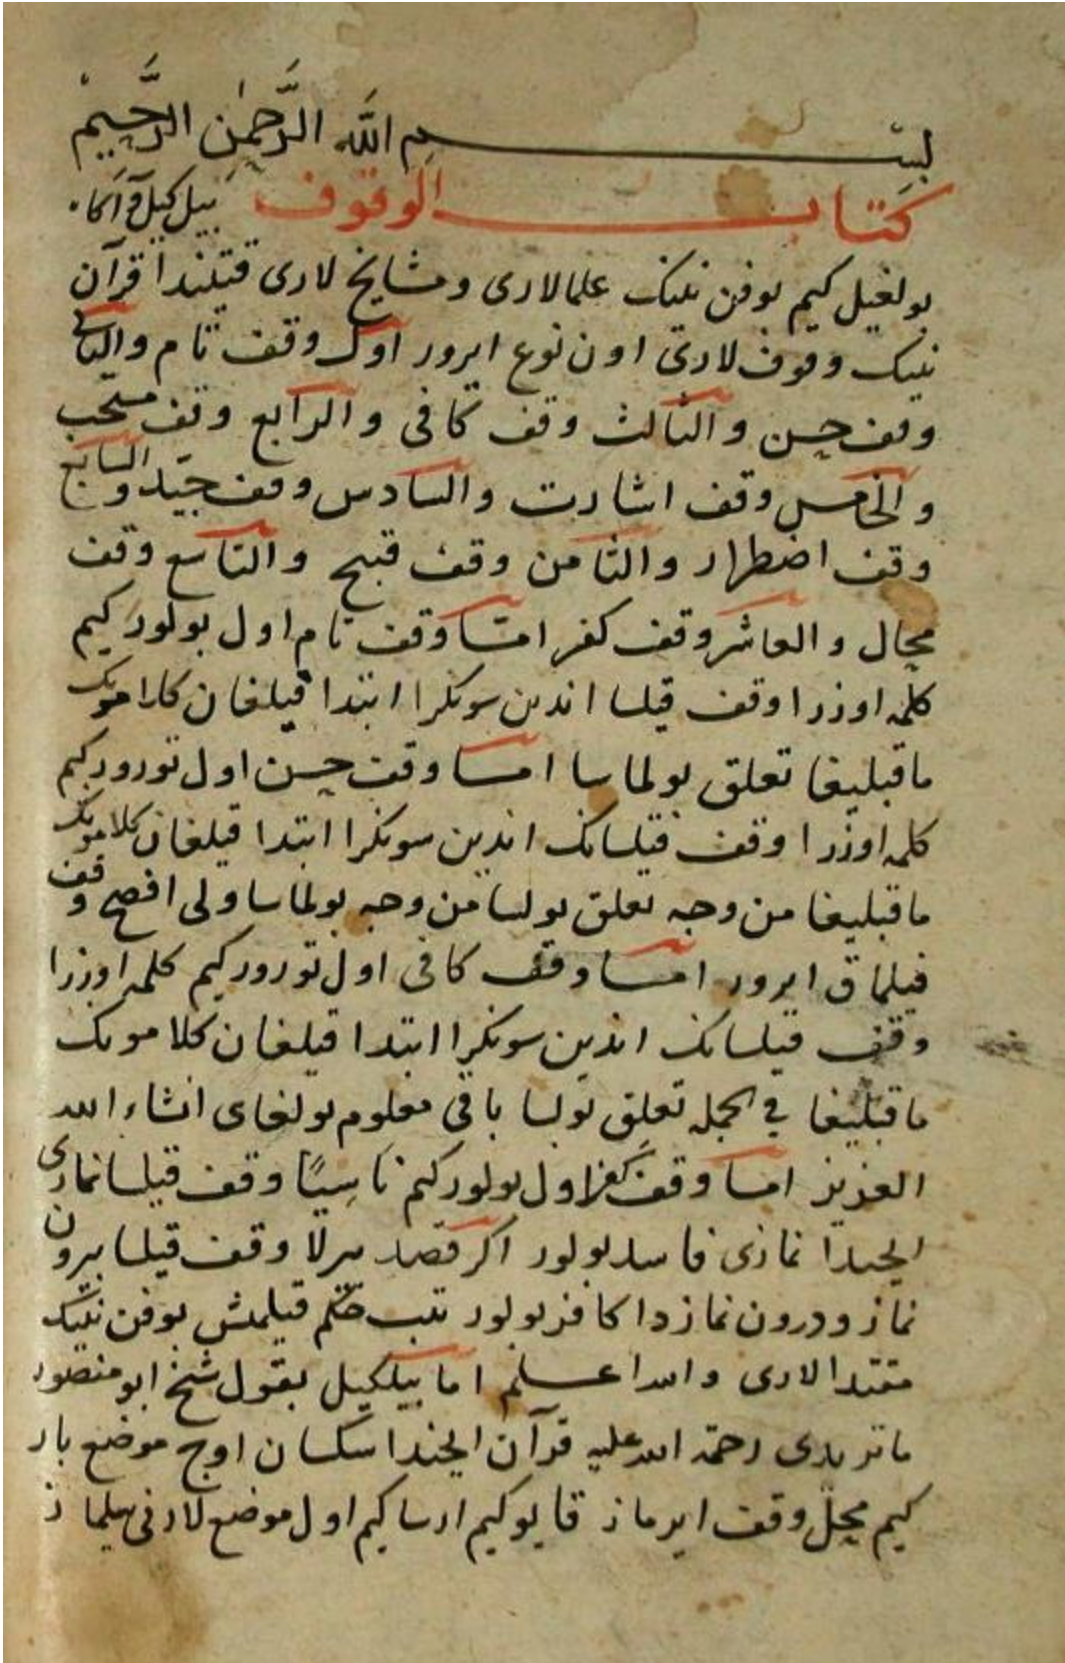 بسم الله الرَّحمٰنِ الرَّحِيم
كتاب الوقوف بيل كيل و آكاه
بولغيل كيم بو فن نينك علمالارى و مشايخ لارى قتيندا قرآن
نينك وقوف لارى اون نوع ايرور اول وقف تام والثانى
وقف حسن و الثالث وقف كافى و الرابع وقف مستحب
و الخامس وقف اشارت والسادس وقف جيّد والسابع
وقف اضطرار والثامن وقف قبيح والتاسع وقف
محال و العاشر وقف كفر امّا وقف تام اول بولور كيم
كلمه اوزرا وقف قيلسا اندين سونكرا ابتدا قيلغان كلامونك
ماقبليغا تعلق بولماسا امّا وقف حسن اول تورور كيم
كلمه اوزرا وقف قيلسانك اندين سونكرا ابتدا قيلغان كلامونك
ماقبليغا من وجه تعلق بولسا من وجه بولماسا ولى افصح وقف
قيلماق ايرور امّا وقف كافى اول تورور كيم كلمه اوزرا
وقف قيلسانك اندين سونكرا ابتدا قيلغان كلامونك
ماقبليغا فى الجمله تعلق بولسا باقى معلوم بولغاى انشاء الله
العزيز امّا وقف كفر اول بولور كيم ناسيًا وقف قيلسا نمازى
ايچندا نمازى فاسد بولور اكر قصد بيرلا وقف قيلسا بيرون
نماز و درون نمازدا كافر بولور تيب حكم قيلمش بو فن نينك
مقتدالارى والله اعلم اما بيلكيل بقول شيخ ابو منصور
ماتريدى رحمة الله عليه قرآن ايچندا سكسان اوچ موضع بار
كيم محل وقف ايرماز قايو كيم ارسا كيم اول موضع لارنى بيلماز